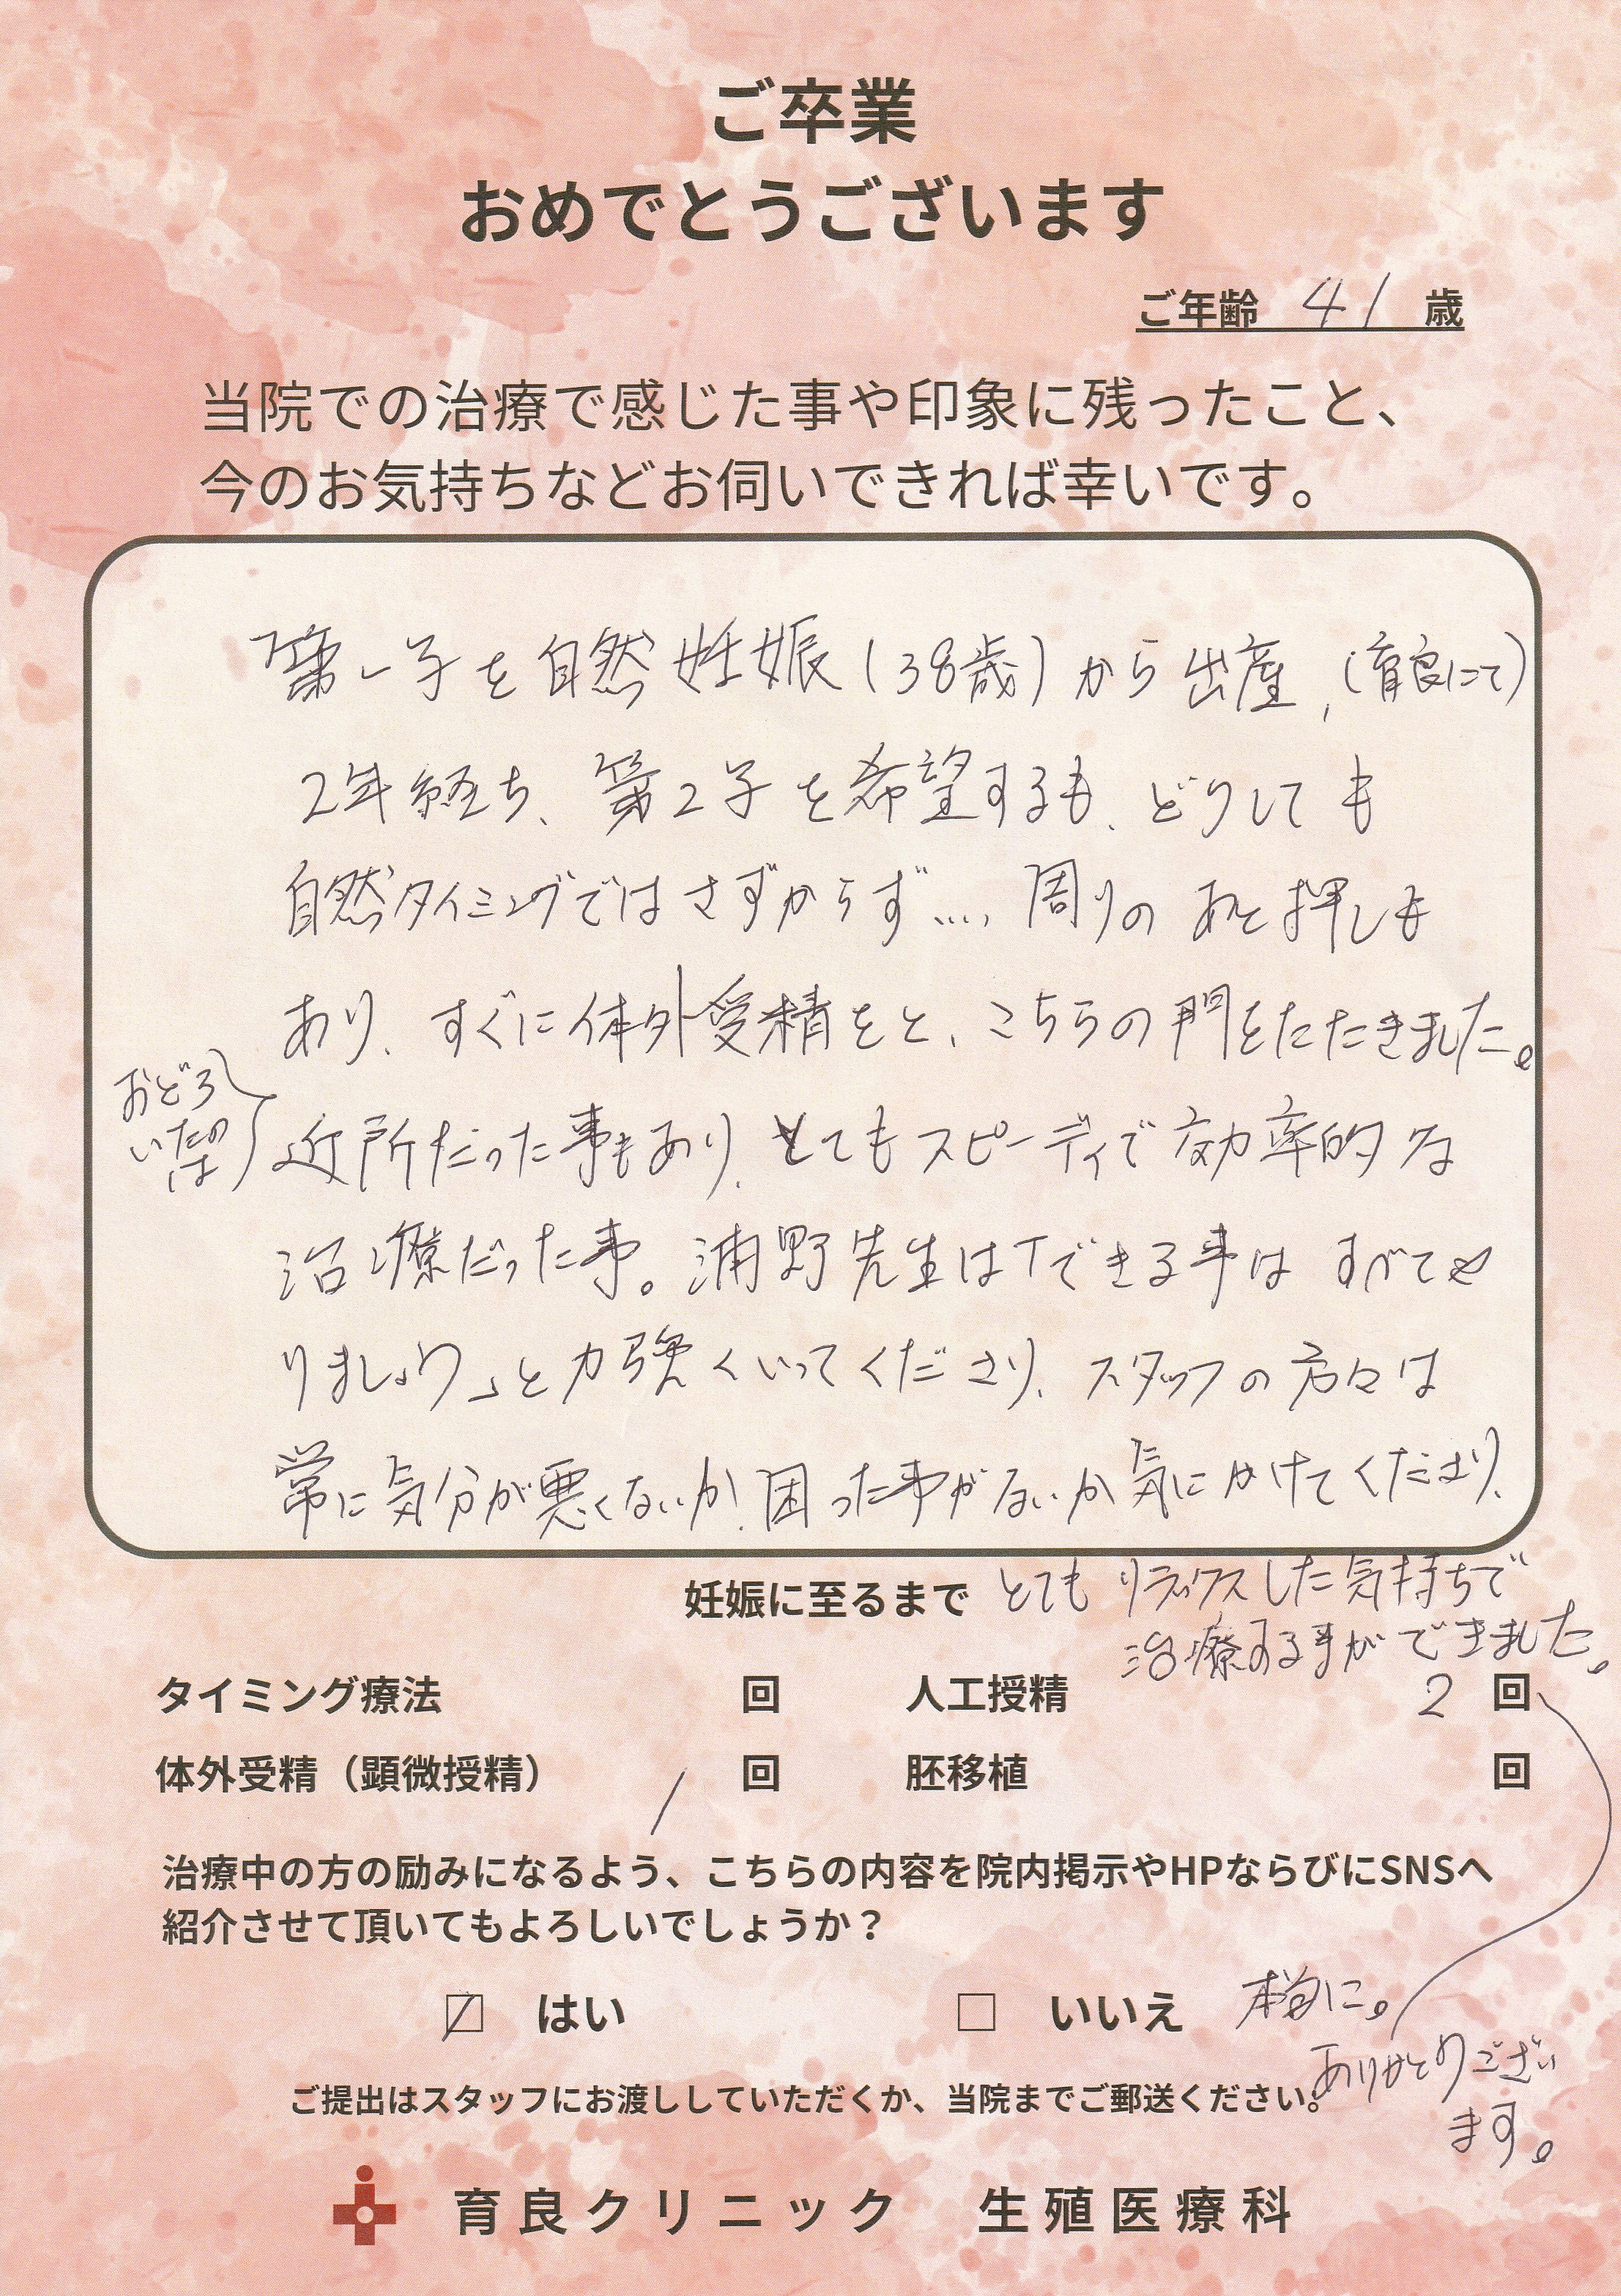 ご卒業
おめでとうございます
ご年齢 41 歳
当院での治療で感じた事や印象に残ったこと、
今のお気持ちなどお伺いできれば幸いです。
第一子を自然妊娠(38歳)から出産,(育良にて)
2年経ち、第2子を希望するも、どうしても
自然タイミングではさずからず…,周りのあと押しも
あり、すぐに体外受精をと、こちらの門をたたきました。
おどろ
いたのは
近所だった事もあり、とてもスピーディで効率的な
治療だった事。浦野先生は「できる事はすべてや
りましょう」と力強くいってくださり、スタッフの方々は
常に気分が悪くないか、困った事がないか気にかけてくださり、
とてもリラックスした気持ちで
治療する事ができました。
妊娠に至るまで
タイミング療法 回 人工授精 2 回
体外受精(顕微授精) 1 回 胚移植 回
治療中の方の励みになるよう、こちらの内容を院内掲示やHPならびにSNSへ
紹介させて頂いてもよろしいでしょうか?
はい いいえ
本当に。
ありがとうござい
ます。
ご提出はスタッフにお渡ししていただくか、当院までご郵送ください。
育良クリニック 生殖医療科